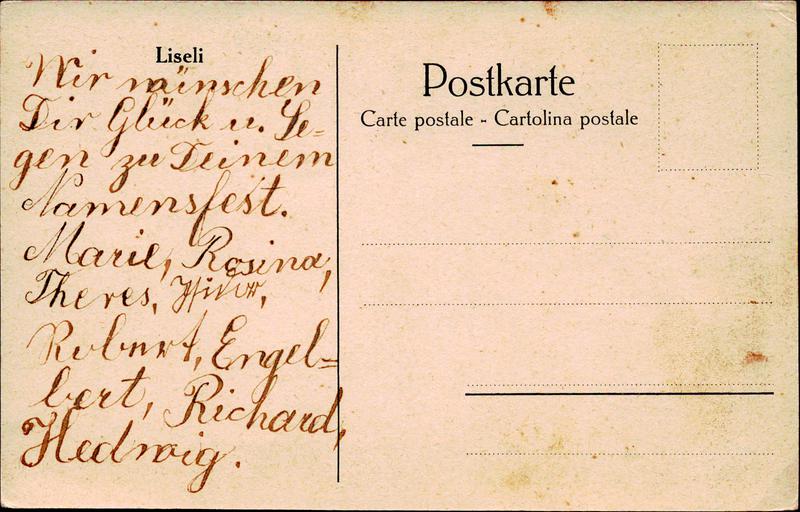 Liseli
Wir wünschen
Dir Glück u. Se-
gen zu Deinem
Namensfest.
Marie, Rosina,
Theres, Isidor,
Robert, Engel=
bert, Richard,
Hedwig.
Postkarte
Carte postale - Cartolina postale